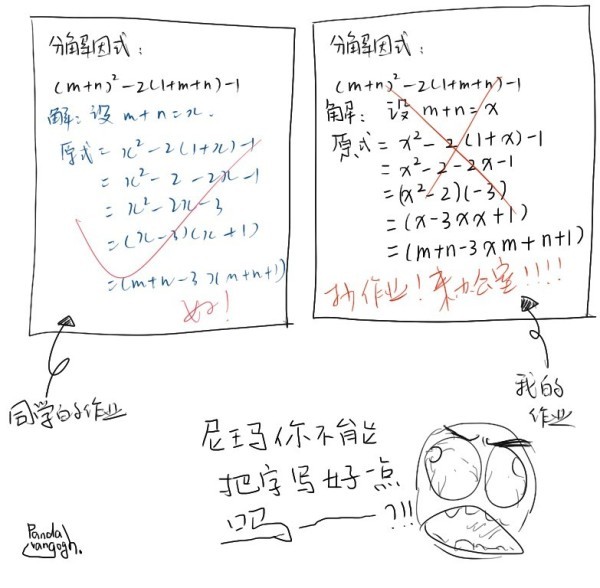 分解因式:
(m+n)²-2(1+m+n)-1
解:设m+n=x.
原式=x²-2(1+x)-1
=x²-2-2x-1
=x²-2x-3
=(x-3)(x+1)
=(m+n-3)(m+n+1)
好!
同学的作业
分解因式:
(m+n)²-2(1+m+n)-1
解:设m+n=x
原式=x²-2(1+x)-1
=x²-2-2x-1
=(x²-2)(-3)
=(x-3)(x+1)
=(m+n-3)(m+n+1)
抄作业!来办公室!!!!
我的
作业
尼玛你不能
把字写好一点
吗——?!!
Panda
vangogh.